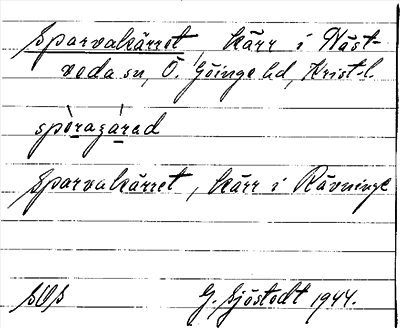 Sparvakärret, kärr i Näst-
veda sn, Ö. Göinge hd, Krist-l.
spòragárad
Sparvakärret, kärr i Rävninge
SOS G. Sjöstedt 1944.